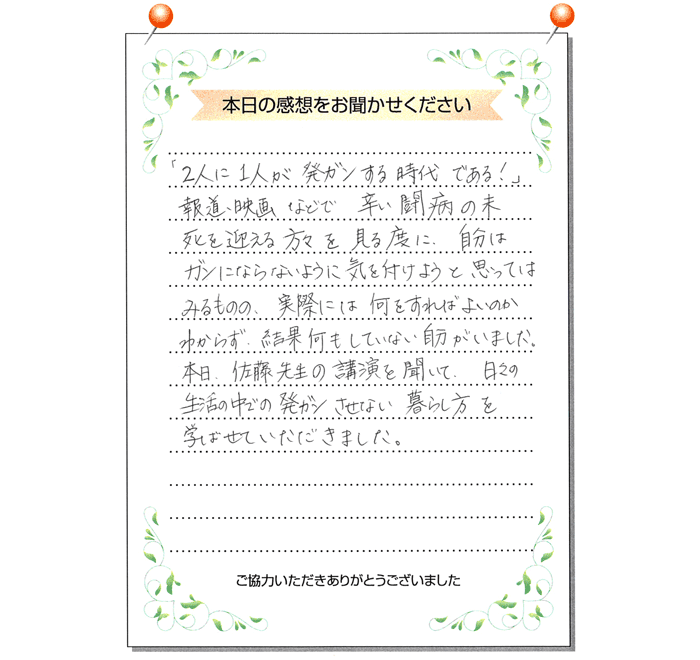 本日の感想をお聞かせください
「2人に1人が発ガンする時代である!」
報道、映画などで 辛い闘病の末
死を迎える方々を見る度に、自分は
ガンにならないように気を付けようと思っては
みるものの、実際には何をすればよいのか
わからず、結果何もしていない自分がいました。
本日、佐藤先生の講演を聞いて、日々の
生活の中での発ガンさせない暮らし方を
学ばせていただきました。
ご協力いただきありがとうございました